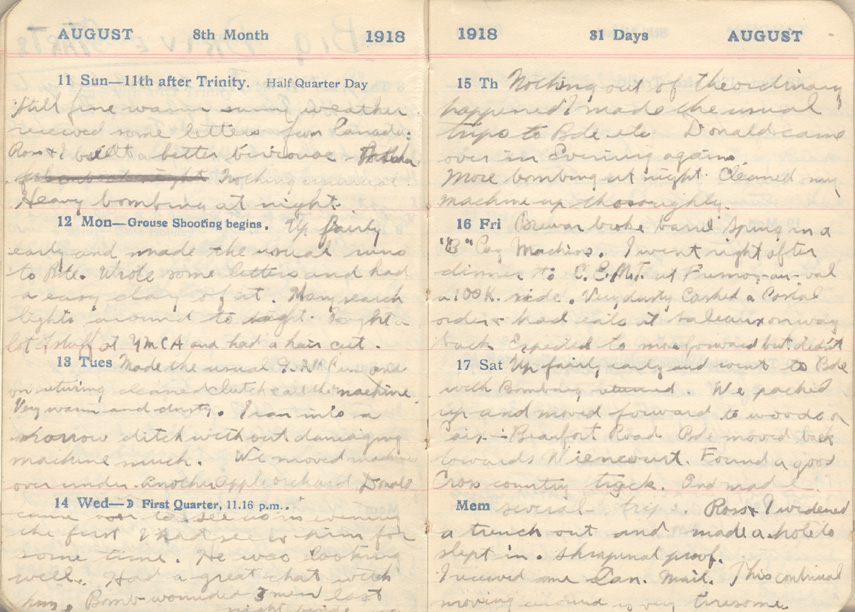 AUGUST 8th Month 1918
11 Sun—11th after Trinity. Half Quarter Day
Still fine warm sunny weather
received some letters from Canada.
Ross & I built a better bivouac
Nothing unusual.
Heavy bombing at night.
12 Mon—Grouse Shooting begins. Up fairly
early and made the usual runs
to Bde. Wrote some letters and had
a easy day of it. Many search
lights around to night. Bought a
lot of stuff at YMCA and had a hair cut.
13 Tues Made the usual Run and
on returning cleaned clutch call the machine.
Very warm and dusty. I ran into a
narrow ditch without damaging
machine much. We moved machines
over under another apple orchard Donald
14 Wed—D First Quarter, 11.16 p.m.
came over to see us in evening
the first I had see to him for
some time. He was looking
well. Had a great chat with
him. Bomb wounded 3 men last
night beside
1918 31 Days AUGUST
15 Th Nothing out of the ordinary
happened I made the usual
trips to Bde etc Donald came
over in Evening again.
More bombing at night. Cleaned my
machine up thoroughly.
16 Fri Brewar broke barrel spring in a
"B" Machine. I went right after
dinner to at
a 100 K. ride. Very dusty Cashed a Postal
order & had eats at on way
back Expected to move forward but didn't
17 Sat Up fairly early and went to Bde
with Bombing . We packed
up and moved forward to woods on
Beaufort Road Bde moved back
towards . Found a good
Cross country track. And made
Mem several trips. Ross & I widened
a trench out and made a hole to
slept in. Shrapnel proof.
I received some Can. Mail. This continual
moving around is very tiresome